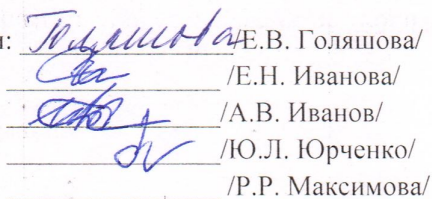 и: Голяшова /Е.В. Голяшова/
/Е.Н. Иванова/
/А.В. Иванов/
/Ю.Л. Юрченко/
/Р.Р. Максимова/